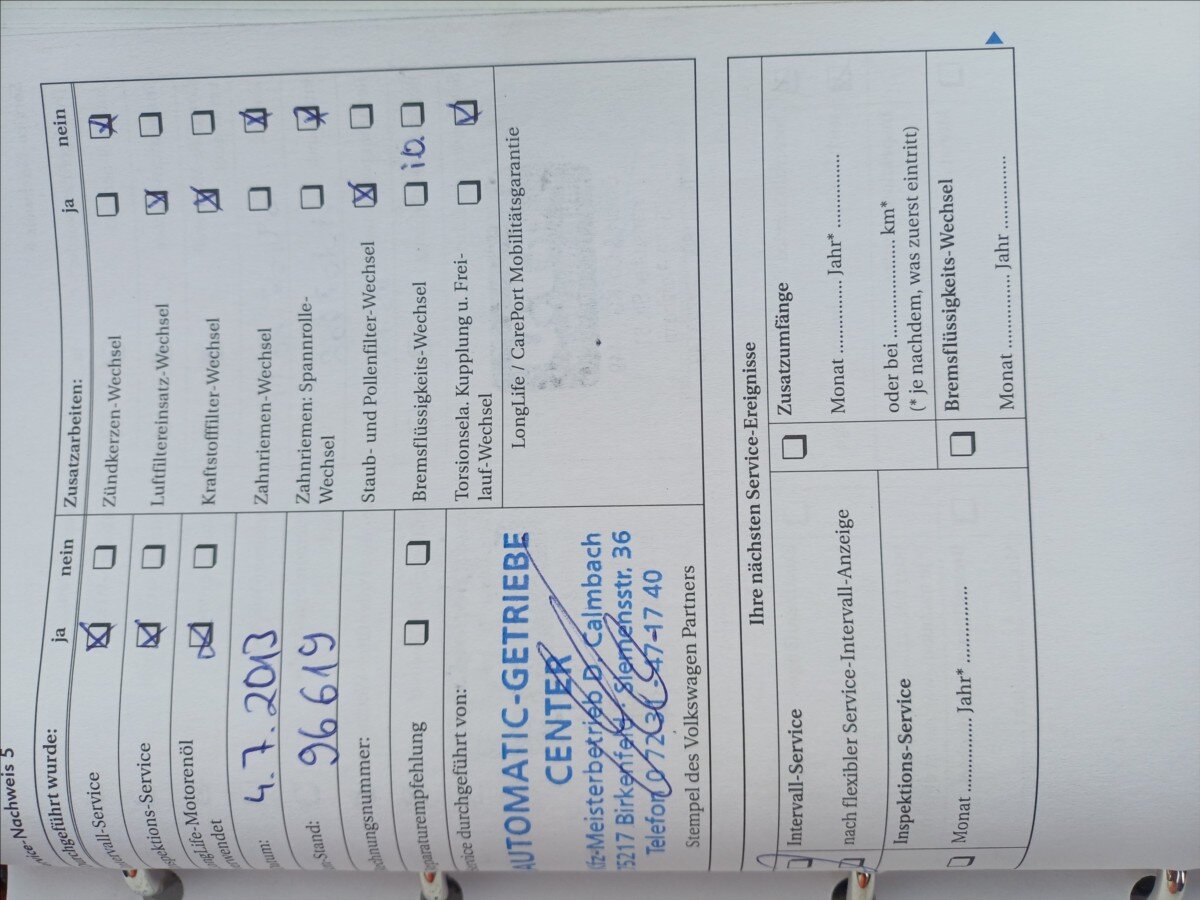 Service-Nachweis 5
Durchgeführt wurde: ja nein
Intervall-Service
Inspektions-Service
LongLife-Motorenöl
verwendet
Datum: 4.7.2013
km-Stand: 96 619
Rechnungsnummer:
Reparaturempfehlung
Service durchgeführt von:
AUTOMATIC-GETRIEBE
CENTER
Kfz-Meisterbetrieb D. Calmbach
75217 Birkenfeld · Siemensstr. 36
Telefon 0 72 31 - 47 17 40
Stempel des Volkswagen Partners
Zusatzarbeiten: ja nein
Zündkerzen-Wechsel
Luftfiltereinsatz-Wechsel
Kraftstofffilter-Wechsel
Zahnriemen-Wechsel
Zahnriemen: Spannrolle-
Wechsel
Staub- und Pollenfilter-Wechsel
Bremsflüssigkeits-Wechsel i.O.
Torsionsela. Kupplung u. Frei-
lauf-Wechsel
LongLife / CarePort Mobilitätsgarantie
Ihre nächsten Service-Ereignisse
Intervall-Service
nach flexibler Service-Intervall-Anzeige
Inspektions-Service
Monat ................ Jahr* ................
Zusatzumfänge
Monat ................ Jahr* ................
oder bei ..................... km*
(* je nachdem, was zuerst eintritt)
Bremsflüssigkeits-Wechsel
Monat ................ Jahr ................